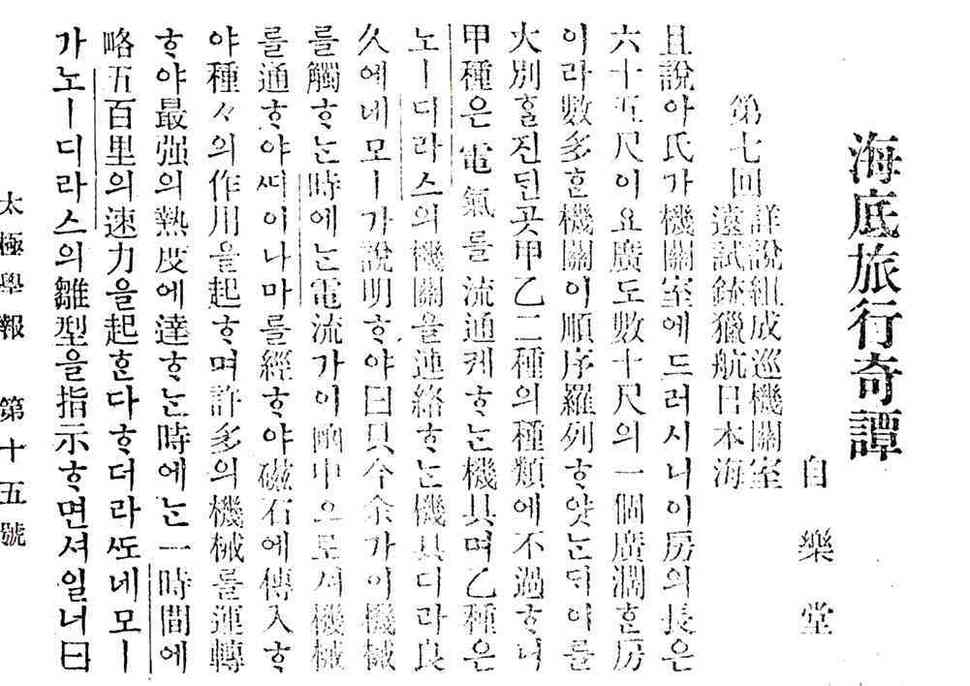 海底旅行奇譚
自樂堂
第七回 詳說組成巡機關室
遠試銃獵航日本海
且說아氏가機關室에드러시니이房의長은
六十五尺이요廣도數十尺의一個廣濶ᄒᆞᆫ房
이라數多ᄒᆞᆫ機關이順序羅列ᄒᆞ얏ᄂᆞᆫᄃᆡ이를
大別ᄒᆞᆯ진ᄃᆡᆫ곳甲乙二種의種類에不過ᄒᆞ니
甲種은電氣를流通케ᄒᆞᄂᆞᆫ機具며乙種은
노ー디라스의機關을連絡ᄒᆞᄂᆞᆫ機具디라良
久에네모ー가說明ᄒᆞ야曰只今余가이機械
를觸ᄒᆞᄂᆞᆫ時에ᄂᆞᆫ電流가이 中으로셔機械
를通ᄒᆞ야ᄯᅡ이나마를經ᄒᆞ야磁石에傳入ᄒᆞ
야種々의作用을起ᄒᆞ며許多의機械를運轉
ᄒᆞ야最强의熱度에達ᄒᆞᄂᆞᆫ時에ᄂᆞᆫ一時間에
略五百里의速力을起ᄒᆞᆫ다ᄒᆞ더라ᄯᅩ네모ー
가노ー디라스의雛型을指示ᄒᆞ면셔일너曰
太極學報 第十五號